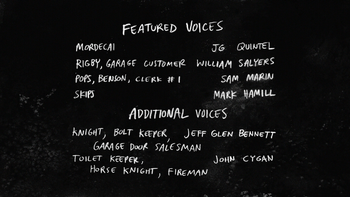 FEATURED VOICES
MORDECAI JG QUINTEL
RIGBY, GARAGE CUSTOMER WILLIAM SALYERS
POPS, BENSON, CLERK #1 SAM MARIN
SKIPS MARK HAMILL
ADDITIONAL VOICES
KNIGHT, BOLT KEEPER, JEFF GLEN BENNETT
GARAGE DOOR SALESMAN
TOILET KEEPER, JOHN CYGAN
HORSE KNIGHT, FIREMAN